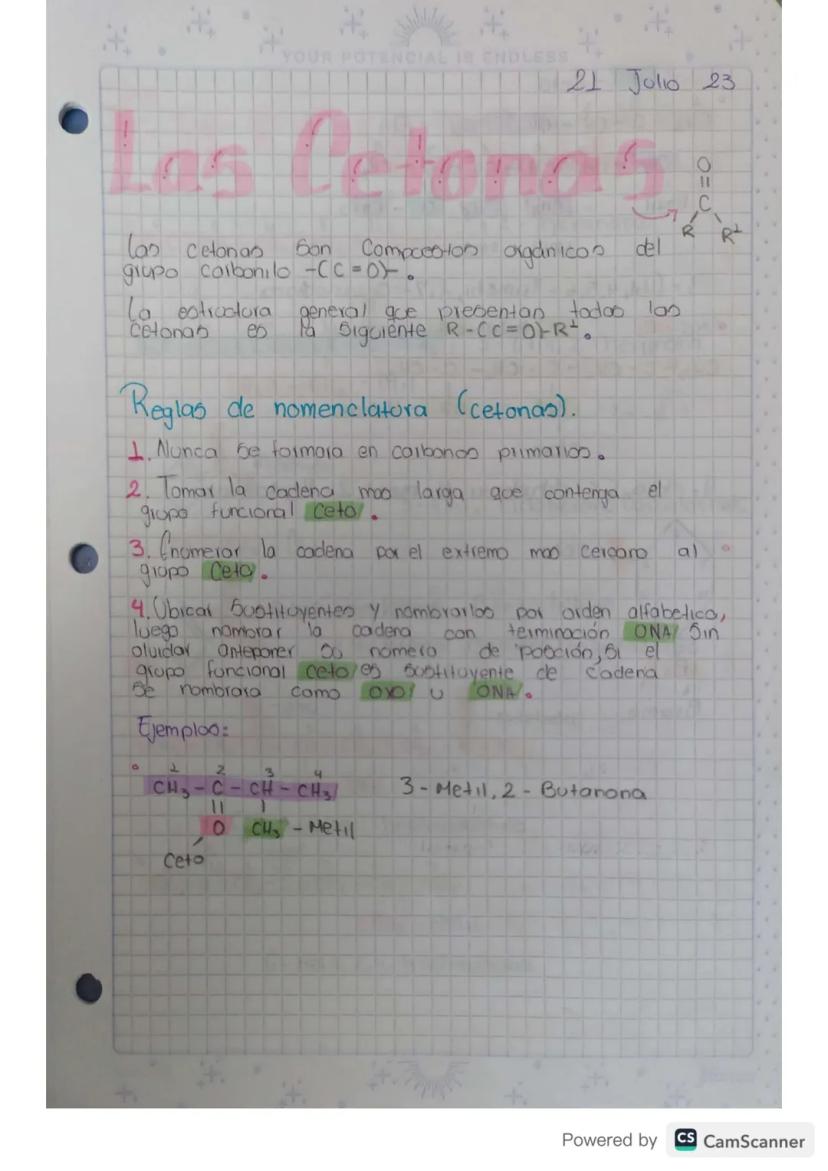 YOUR POTENCIAL IS ENDLESS
21 Julio 23
Las Cetonas
O
||
C
R R¹
Las cetonas son compuestos orgánicos del
grupo carbonilo -(C=O)-.
La estructura general que presentan todas las
cetonas es la siguiente R-(C=O)-R¹.
Reglas de nomenclatura (cetonas).
1. Nunca se formara en carbonos primarios.
2. Tomar la cadena mas larga que contenga el
grupo funcional Ceto.
3. Enumerar la cadena por el extremo mas cercaro al
grupo Ceto.
4. Ubicar Sustituyentes y nombrarlos por orden alfabetico,
luego nombrar la cadena con terminación ONA Sin
olvidar anteponer su numero de posción, Si el
grupo funcional ceto es sustituyente de cadena
se nombrara como OXO u ONA.
Ejemplos:
1 2 3 4
CH₃ - C - CH - CH₃ 3 - Metil, 2 - Butanona
|| |
O CH₃ - Metil
Ceto
Powered by CS CamScanner